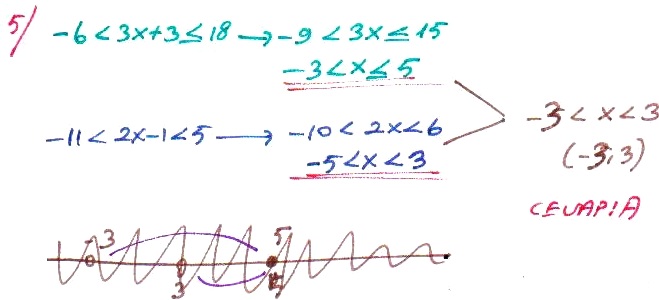 5/ -6 < 3x+3 ≤ 18 → -9 < 3x ≤ 15
-3 < x ≤ 5
-11 < 2x-1 < 5 → -10 < 2x < 6
-5 < x < 3
-3 < x < 3
(-3,3)
CEVAP:A
-3 5
3